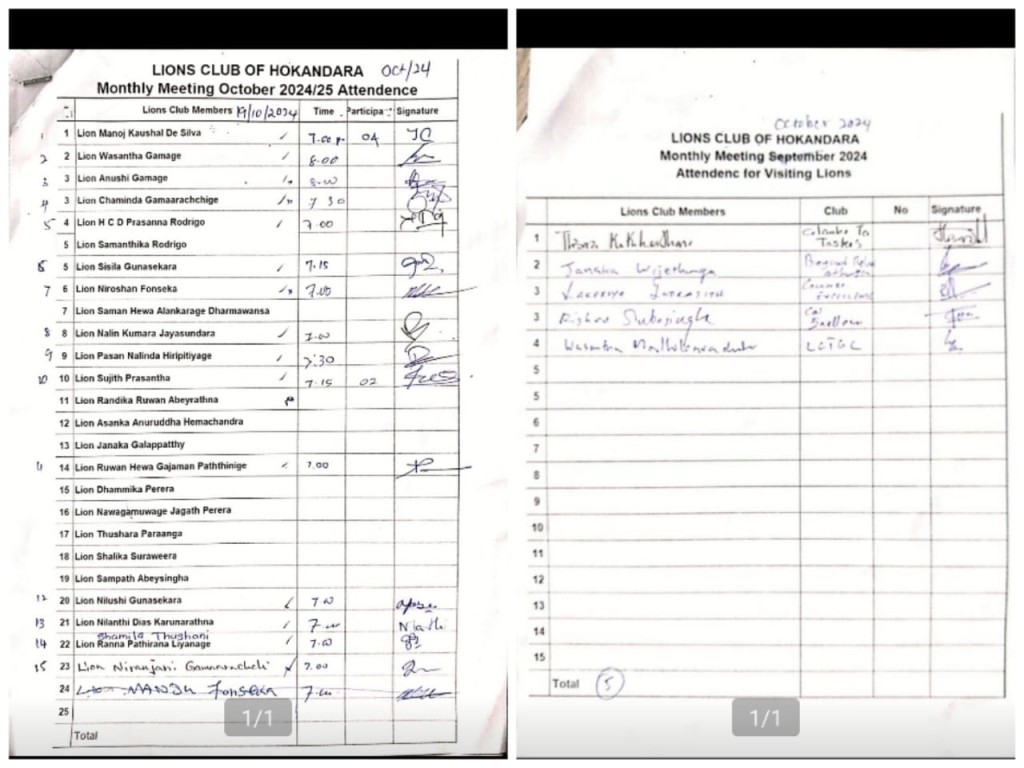 LIONS CLUB OF HOKANDARA Oct/24
Monthly Meeting October 2024/25 Attendence
Lions Club Members 19/10/2024 Time Participa Signature
1 1 Lion Manoj Kaushal De Silva 7.00 p. 04
2 2 Lion Wasantha Gamage 8.00
3 3 Lion Anushi Gamage 8.00
4 3 Lion Chaminda Gamaarachchige 7 30
5 4 Lion H C D Prasanna Rodrigo 7.00
5 Lion Samanthika Rodrigo
6 5 Lion Sisila Gunasekara 7.15
7 6 Lion Niroshan Fonseka 7.00
7 Lion Saman Hewa Alankarage Dharmawansa
8 8 Lion Nalin Kumara Jayasundara 7.00
9 9 Lion Pasan Nalinda Hiripitiyage 7:30
10 10 Lion Sujith Prasantha 7.15 02
11 Lion Randika Ruwan Abeyrathna
12 Lion Asanka Anuruddha Hemachandra
13 Lion Janaka Galappatthy
11 14 Lion Ruwan Hewa Gajaman Paththinige 7.00
15 Lion Dhammika Perera
16 Lion Nawagamuwage Jagath Perera
17 Lion Thushara Paraanga
18 Lion Shalika Suraweera
19 Lion Sampath Abeysingha
12 20 Lion Nilushi Gunasekara 7.00
13 21 Lion Nilanthi Dias Karunarathna 7
Shamila Thushani
14 22 Lion Ranna Pathirana Liyanage 7.00
15 23 Lion Niranjani 7.00
24 Lion NANDU Fonseka 7
25
Total
1/1
October 2024
LIONS CLUB OF HOKANDARA
Monthly Meeting September 2024
Attendenc for Visiting Lions
Lions Club Members Club No Signature
1
2 Janaka Wijethunga
3
3
4 LCTGC
5
5
6
7
8
9
10
11
12
13
14
15
Total 5
1/1